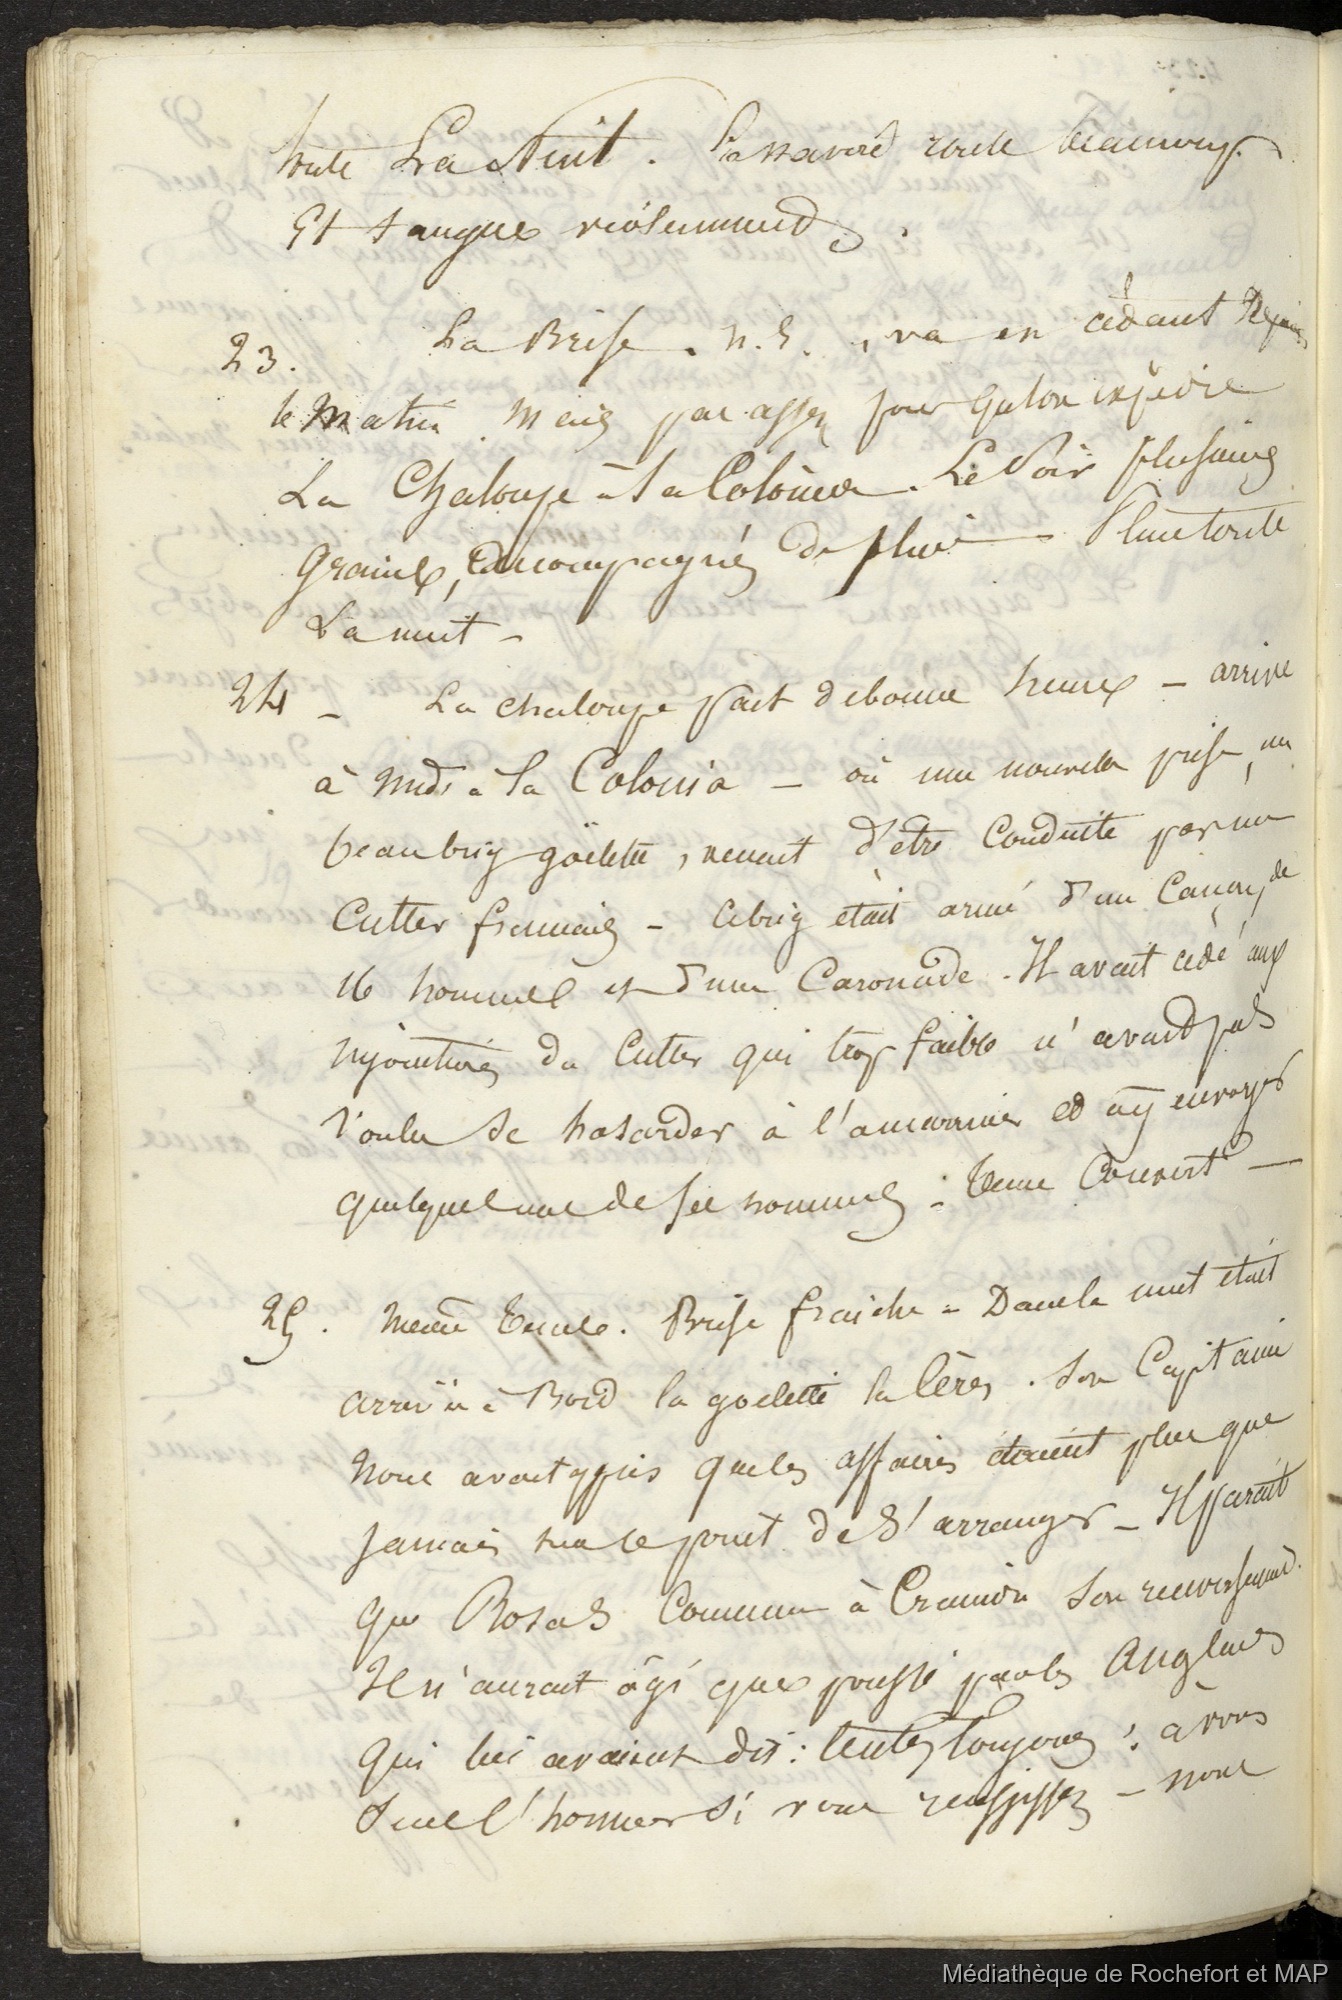 toute La Nuit. roule beaucoup
Et tangue violemment.
23. La Brise. N.E., va en cédant depuis
le matin. Mais pas assez pour qu'on expédie
La Chaloupe à la Colonia. Le soir plusieurs
Grains, accompagnés de pluie — Pluie toute
La nuit —
24 — La chaloupe part de bonne heure — arrive
à midi à la Colonia — où une nouvelle prise, un
beau brig goëlette, venait d'être conduite par un
Cutter français — Ce brig était armé d'un Canon, de
16 hommes et d'une Caronade. Il avait cédé aux
injonctions du Cutter qui trop faible n'avait pas
voulu se hasarder à l'amariner et à y envoyer
quelques uns de ses hommes. Tems Couvert —
25. Même tems. Brise fraiche — Dans la nuit était
arrivée à Bord la goelette la Cérès. Son Capitaine
nous avait appris que les affaires étaient plus que
jamais sur le point de s'arranger — Il parait
que Rosas Commence à Craindre son renversement.
Il n'aurait agi que poussé par les Anglais
qui lui avaient dit: tentez toujours; à vous
seul l'honneur si vous réussissez — nous
Médiathèque de Rochefort et MAP